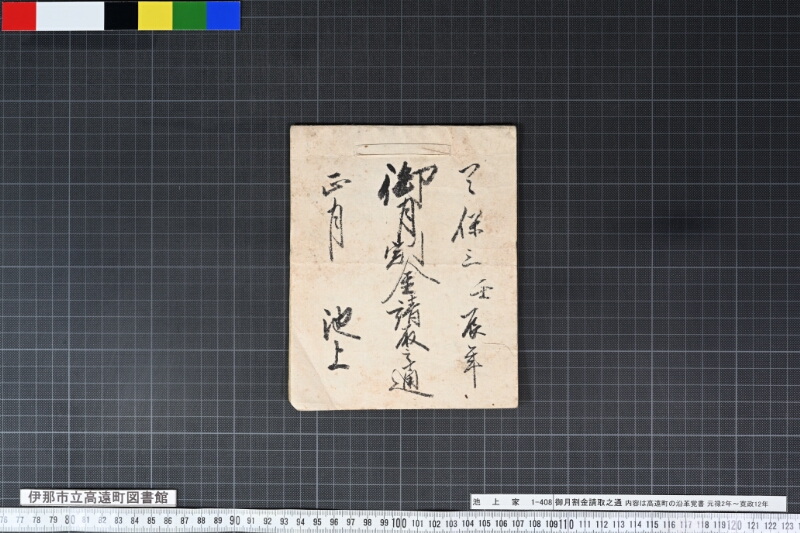 天保三壬辰年
御月割金請取之通
正月 池上
伊那市立高遠町図書館
池上家 1-408 御月割金請取之通 内容は高遠町の沿革覚書 元禄2年～寛政12年
76 77 78 79 80 81 82 83 84 85 86 87 88 89 90 91 92 93 94 95 96 97 98 99 100 101 102 103 104 105 106 107 108 109 110 111 112 113 114 115 116 117 118 119 120 121 122 123